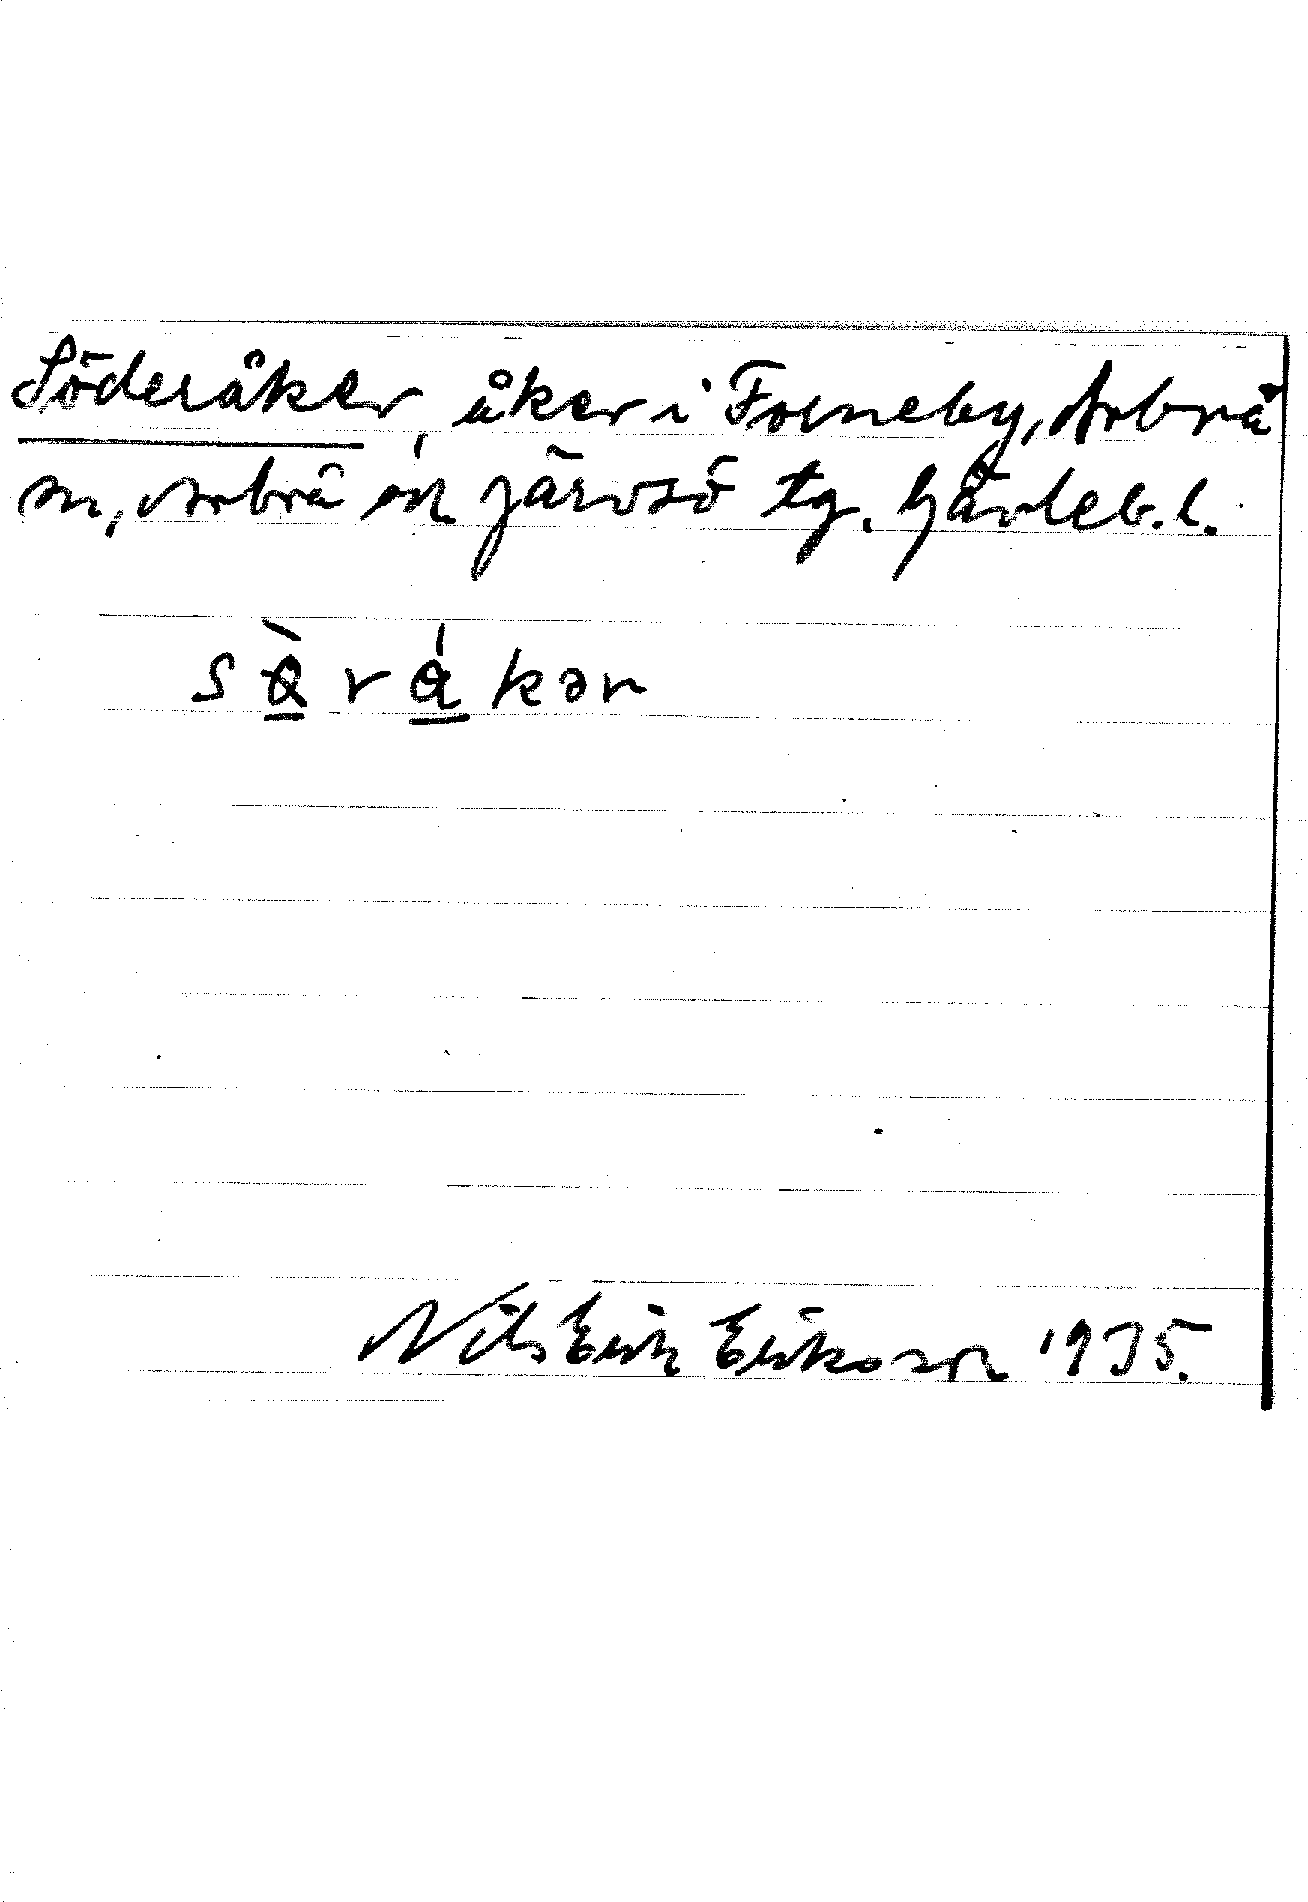 Söderåker, åker i Forneby, Arbrå
sn, Arbrå och Järvsö tg. Gävleb. l.
kər
Nils Erik Eriksson 1935.